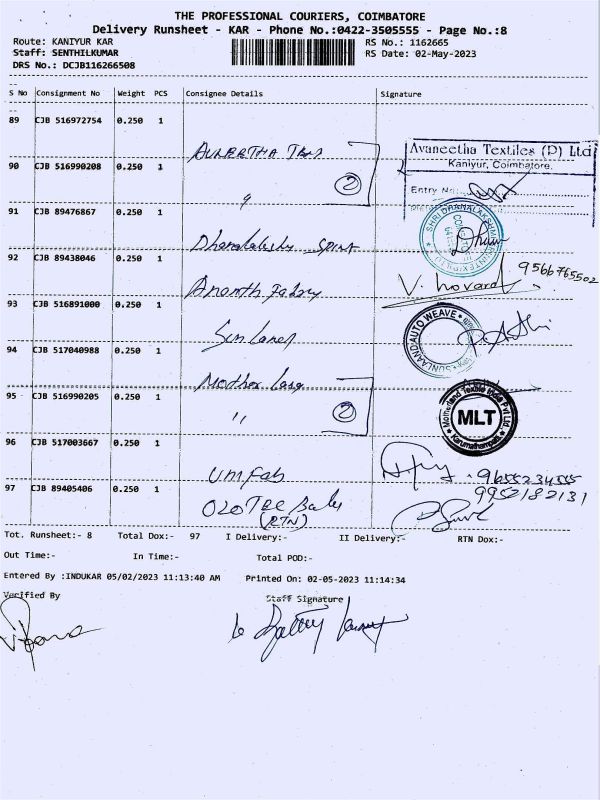 THE PROFESSIONAL COURIERS, COIMBATORE
Delivery Runsheet - KAR - Phone No.:0422-3505555 - Page No.:8
Route: KANIYUR KAR
RS No.: 1162665
Staff: SENTHILKUMAR
RS Date: 02-May-2023
DRS No.: DCJB116266508
S No Consignment No Weight PCS Consignee Details Signature
89 CJB 516972754 0.250 1
Avaneetha Textiles (P) Ltd
Kaniyur, Coimbatore.
90 CJB 516990208 0.250 1
(2)
Entry No
91 CJB 89476867 0.250 1
SHRI DHANALAKSHMI
92 CJB 89438046 0.250 1
9566765502
Ananth Fabry
93 CJB 516891000 0.250 1
SUNLAAND AUTO WEAVE
94 CJB 517040988 0.250 1
Mother Lang
95 CJB 516990205 0.250 1
" (2)
Motherland Textile India Pvt Ltd
MLT
Karumathampatti
96 CJB 517003667 0.250 1
UM Fab
9655234555
97 CJB 89405406 0.250 1
9952182131
(RTN)
Tot. Runsheet:- 8 Total Dox:- 97 I Delivery:- II Delivery:- RTN Dox:-
Out Time:- In Time:- Total POD:-
Entered By :INDUKAR 05/02/2023 11:13:40 AM Printed On: 02-05-2023 11:14:34
Verified By Staff Signature